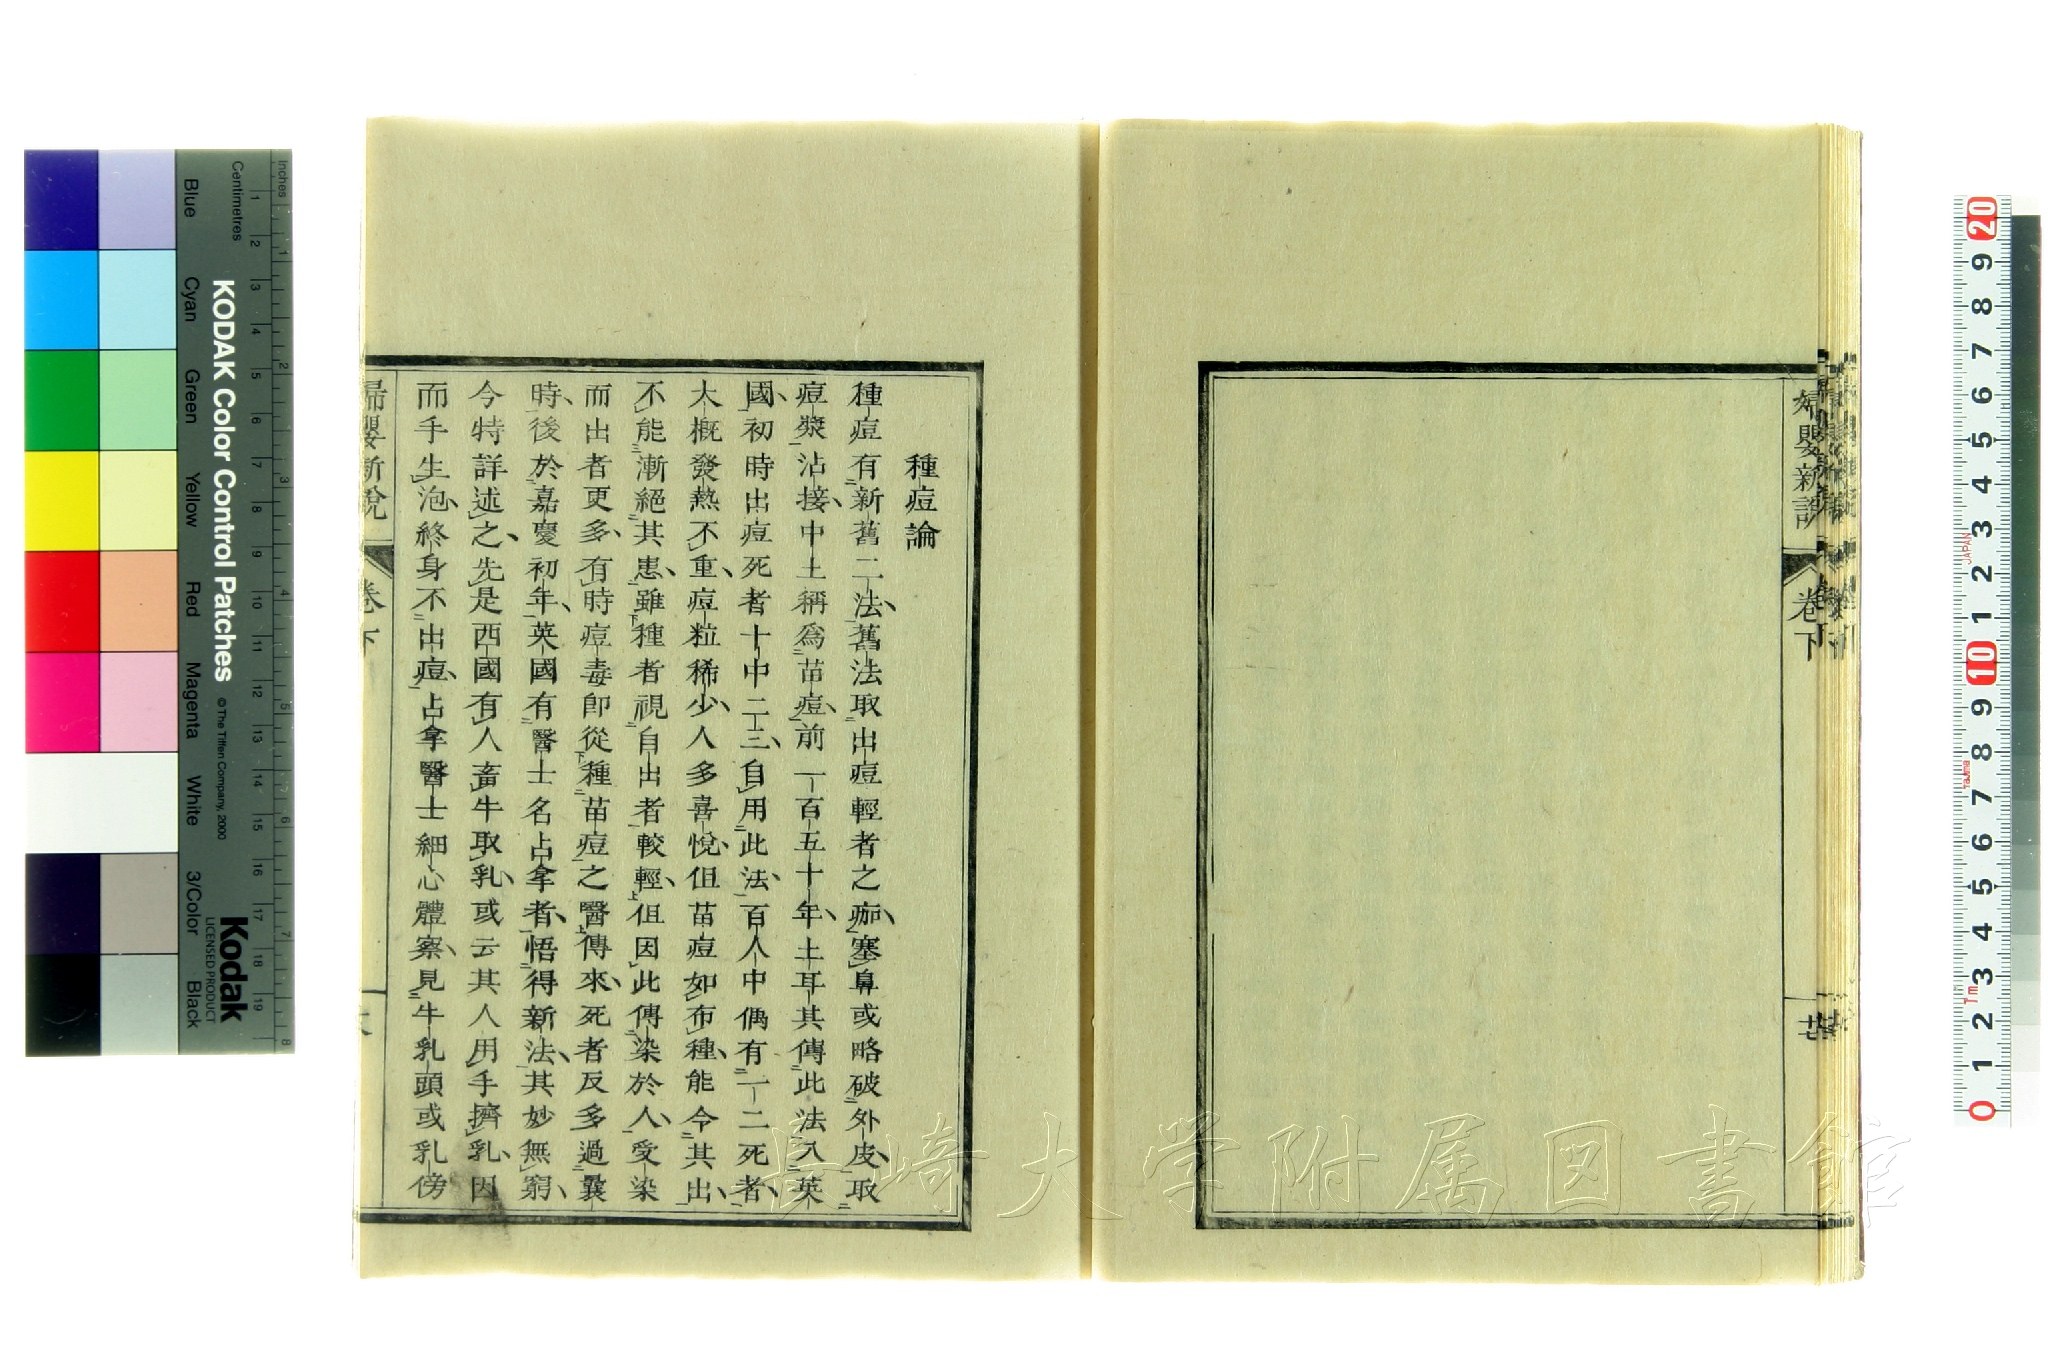 婦嬰新説
卷下
廿七
種痘論
種痘有新舊二法、舊法取出痘輕者之痂、塞鼻或略破外皮、取
痘漿沾接、中土稱為苗痘、前一百五十年、土耳其傳此法入英
國、初時出痘死者十中二三、自用此法、百人中偶有一二死者、
大概發熱不重、痘粒稀少、人多喜悅、但苗痘如布種、能令其出、
不能漸絕其患、雖種者視自出者較輕、但因此傳染於人、受染
而出者更多、有時痘毒即從種苗痘之醫傳來、死者反多過曩
時、後於嘉慶初年、英國有醫士名占拿者、悟得新法、其妙無窮、
今特詳述之、先是西國有人畜牛取乳、或云其人用手擠乳、因
而手生泡、終身不出痘、占拿醫士細心體察、見牛乳頭或乳傍
婦嬰新說
卷下
KODAK Color Control Patches
© The Tiffen Company, 2000
Kodak
LICENSED PRODUCT
Inches
Centimetres
Blue
Cyan
Green
Yellow
Red
Magenta
White
3/Color
Black
1 2 3 4 5 6 7 8 9 10 11 12 13 14 15 16 17 18 19
1 2 3 4 5 6 7 8
20 9 8 7 6 5 4 3 2 1 10 9 8 7 6 5 4 3 2 1 0
JAPAN
Tajima
Tm
長崎大学附属図書館